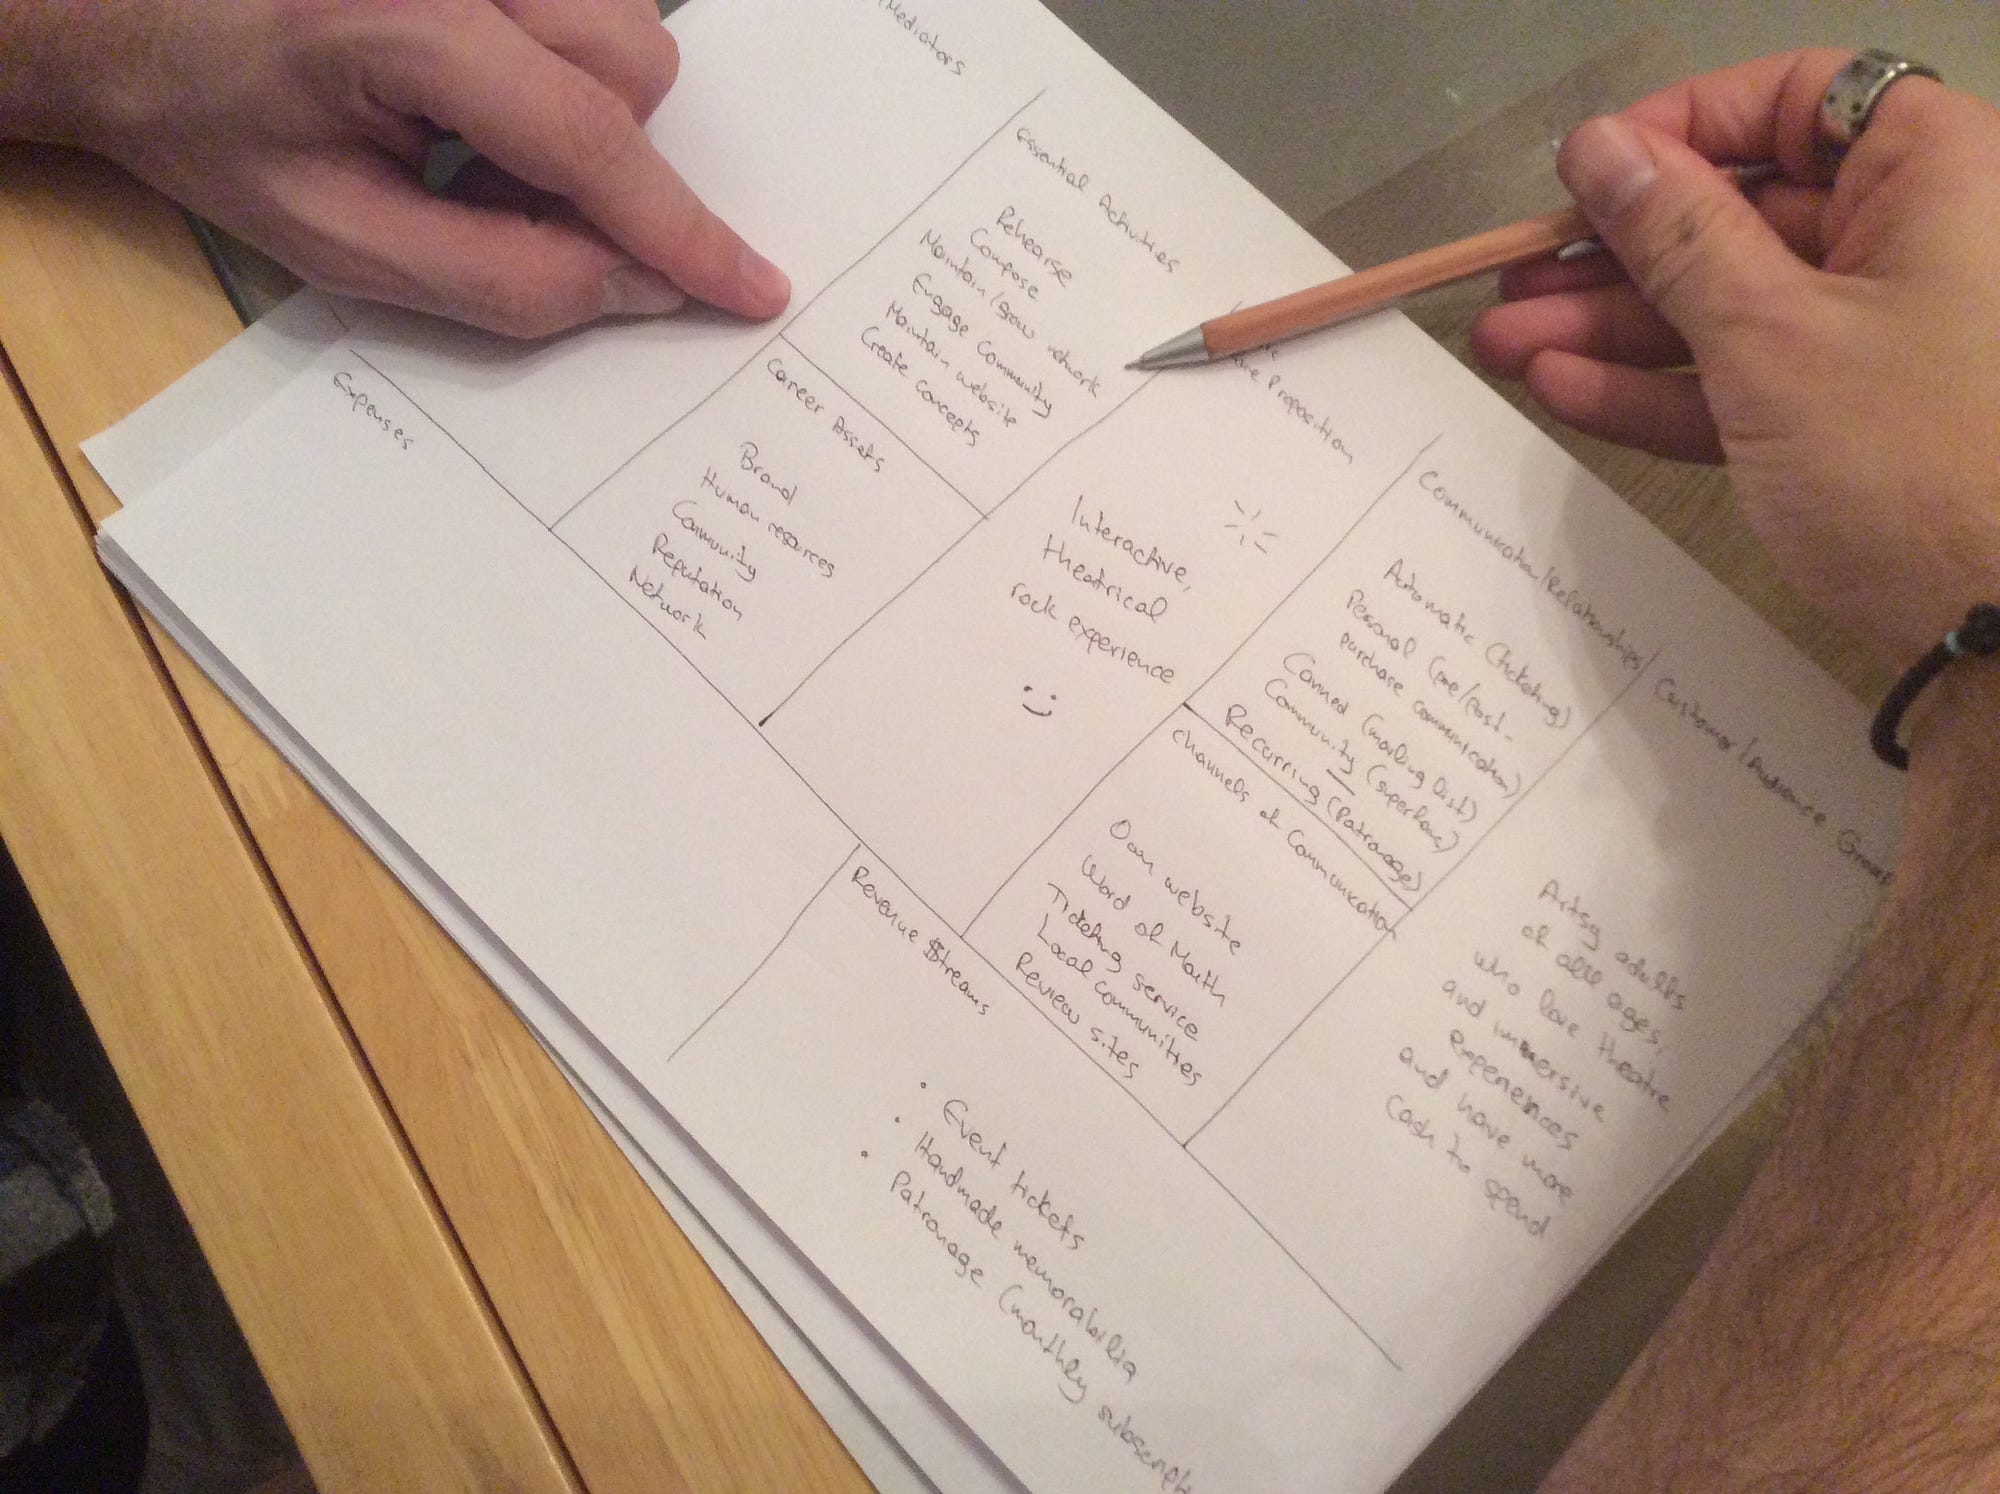 /Mediators
Essential Activities
Rehearse
Compose
Maintain/grow network
Engage community
Maintain website
Create concepts
Career Assets
Brand
Human resources
Community
Reputation
Network
Proposition
Interactive,
theatrical
rock experience
Communication/Relationships
Automatic (ticketing)
Personal (pre/post-
purchase communication)
Canned (mailing list)
Community (superfans)
Recurring (Patronage)
Channels of Communication
Own website
Word of Mouth
Ticketing service
Local communities
Review sites
Customer/Audience
Artsy adults
of all ages,
who love theatre
and immersive
experiences
and have more
cash to spend
Expenses
Revenue $treams
• Event tickets
• Handmade memorabilia
• Patronage (monthly